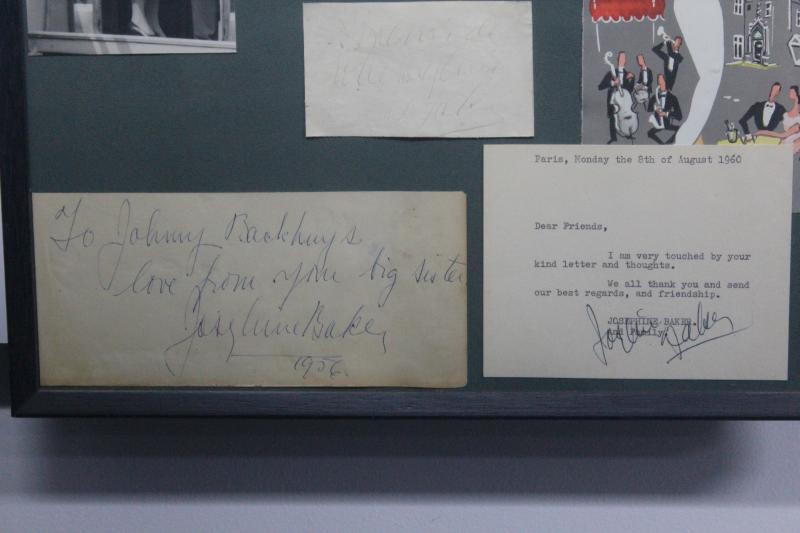 Paris, Monday the 8th of August 1960
Dear Friends,
I am very touched by your
kind letter and thoughts.
We all thank you and send
our best regards, and friendship.
JOSEPHINE BAKER
and Family
Josephine Baker
To Johnny Backhuys
love from your big sister
Josephine Baker
1956.